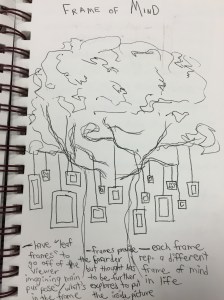 FRAME OF MIND
- have "leaf
frames" to
go off of the
viewer
imagining own
purpose/what's
in the frame
- frames provide
the boarder
but thought has
to be further
explored to put
the inside picture
- each frame
rep. a different
frame of mind
in life